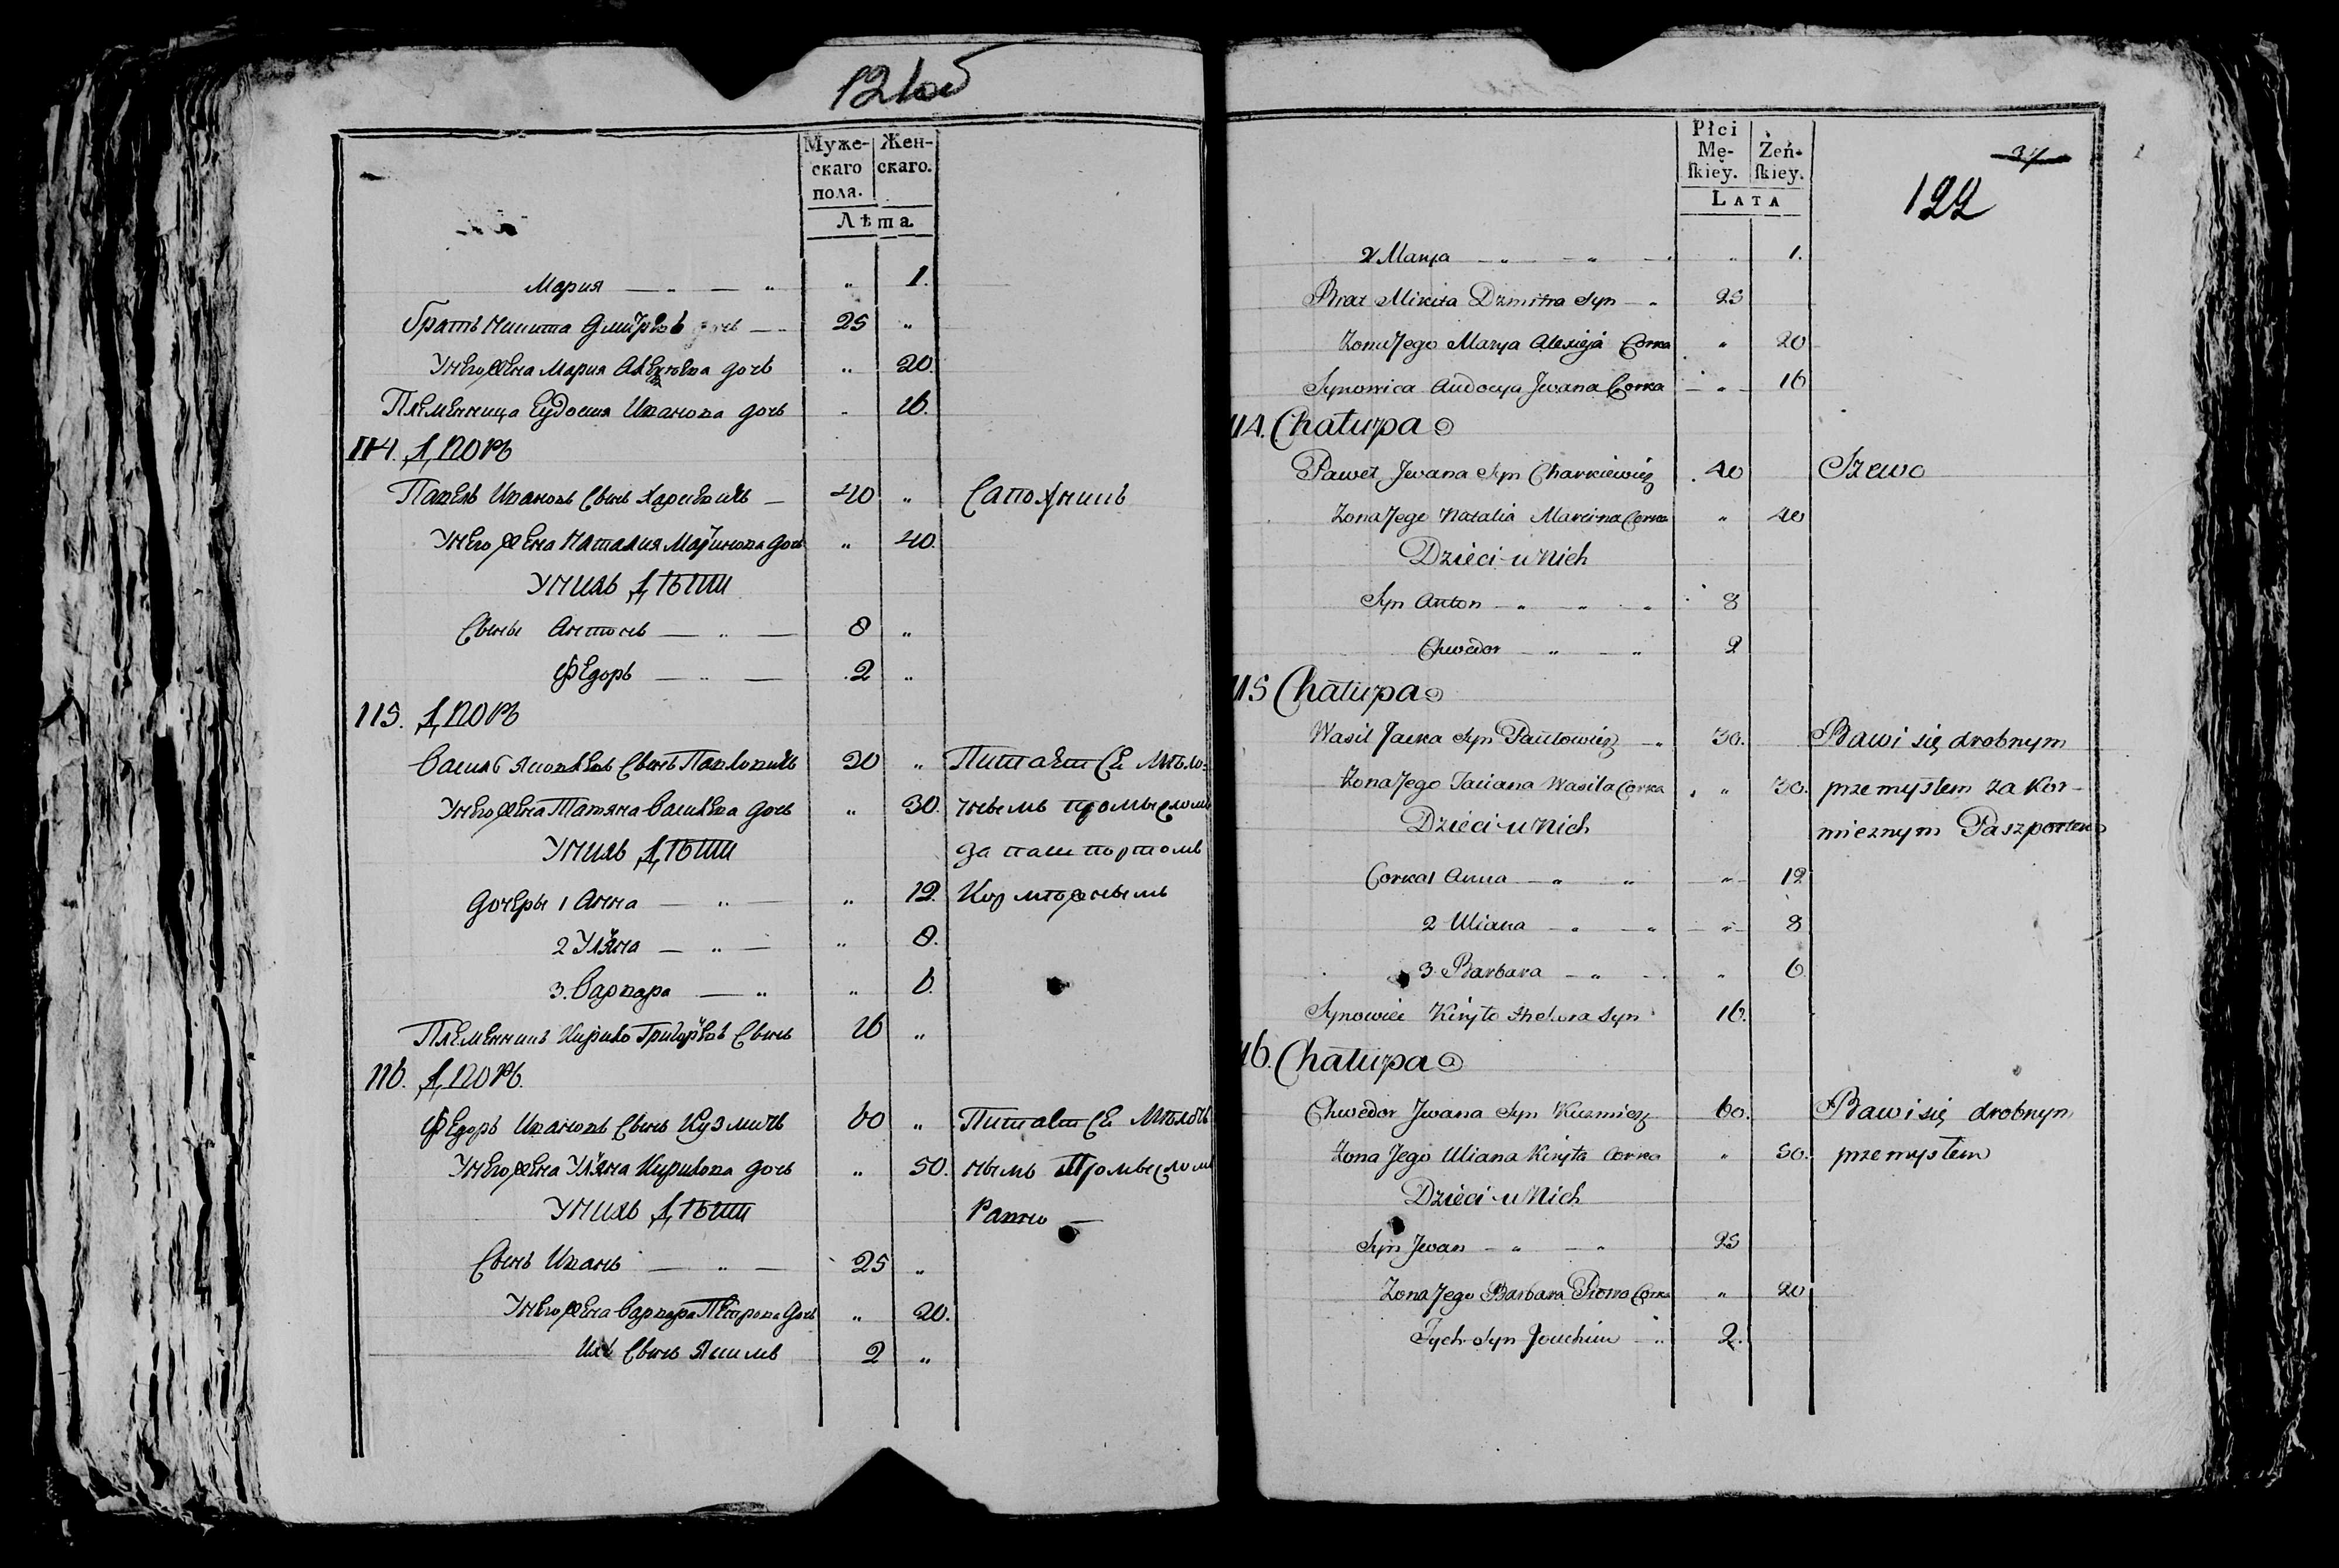 121об
Муже-
скаго
пола.
Жен-
скаго.
Лѣта.
Мария — „ — „ „ 1.
братъ Никита Дмитровъ — 25 „
У него жена Мария Алексѣева дочь „ 20
Племенница Еудокия Иванова дочь „ 16.
114. Дворъ
Павелъ Ивановъ Сынъ Харкевичь — 40 „ Сапожникъ
У него жена Наталия Мартинова дочь „ 40.
У нихъ Дѣти
Сыны Антонъ — „ — 8 „
Федоръ — „ — 2 „
115. Дворъ
Василь Яковлевъ Сынъ Павловичь 30 „ Питается мѣло-
У него жена Татяна Василева дочь „ 30. чнымъ промысломъ
У нихъ Дѣти за пашпортомъ
Дочеры 1 Анна — „ — „ 12. Кормежнымъ
2 Уляна — „ — „ 8.
3. Варвара — „ „ 6.
Племенникъ Кирило Григорьевъ Сынъ 16 „
116. Дворъ.
Федоръ Ивановъ Сынъ Кузмичь 60 „ Питается Мѣлоч
У него жена Уляна Кирилова дочь „ 50. нымъ Промысломъ
У нихъ Дѣти Равно —
Сынъ Иванъ — „ — 25 „
У него жена Варвара Петрова дочь „ 20.
Ихъ Сынъ Якимъ 2 „
Płci
Mę-
ſkiey.
Żeń-
ſkiey.
LATA
37
122
2 Marya — „ — „ „ 1.
Brat Mikita Dzmitra Syn — „ 25
Żona Jego Marya Alexieja Corka „ 20
Synowica Audocya Jwana Corka — „ — 16
114. Chałupa
Paweł Jwana Syn Charkiewicz 40 Szewc
Żona Jego Natalia Marcina Corka „ 40
Dzieci u Nich
Syn Anton — „ — „ — „ 8
Chwedor — „ — „ 2
115 Chałupa
Wasil Jacka Syn Pawłowicz — „ 30. Bawi się drobnym
Żona Jego Taciana Wasila Corka „ 30. przemysłem za Kor-
Dzieci u Nich mieznym Paszportem
Corka 1 Anna — „ „ — „ — 12
2 Uliana — „ — „ — „ — 8
3 Barbara — „ — „ 6
Synowiec Kiryło Syn 16.
116. Chałupa
Chwedor Jwana Syn Kuzmicz 60. Bawi się drobnym
Żona Jego Uliana Kiryła Corka „ 50. przemysłem
Dzieci u Nich
Syn Jwan — „ — „ 25
Żona Jego Barbara Piotra Corka „ 20
Tych Syn Joachim — „ 2.